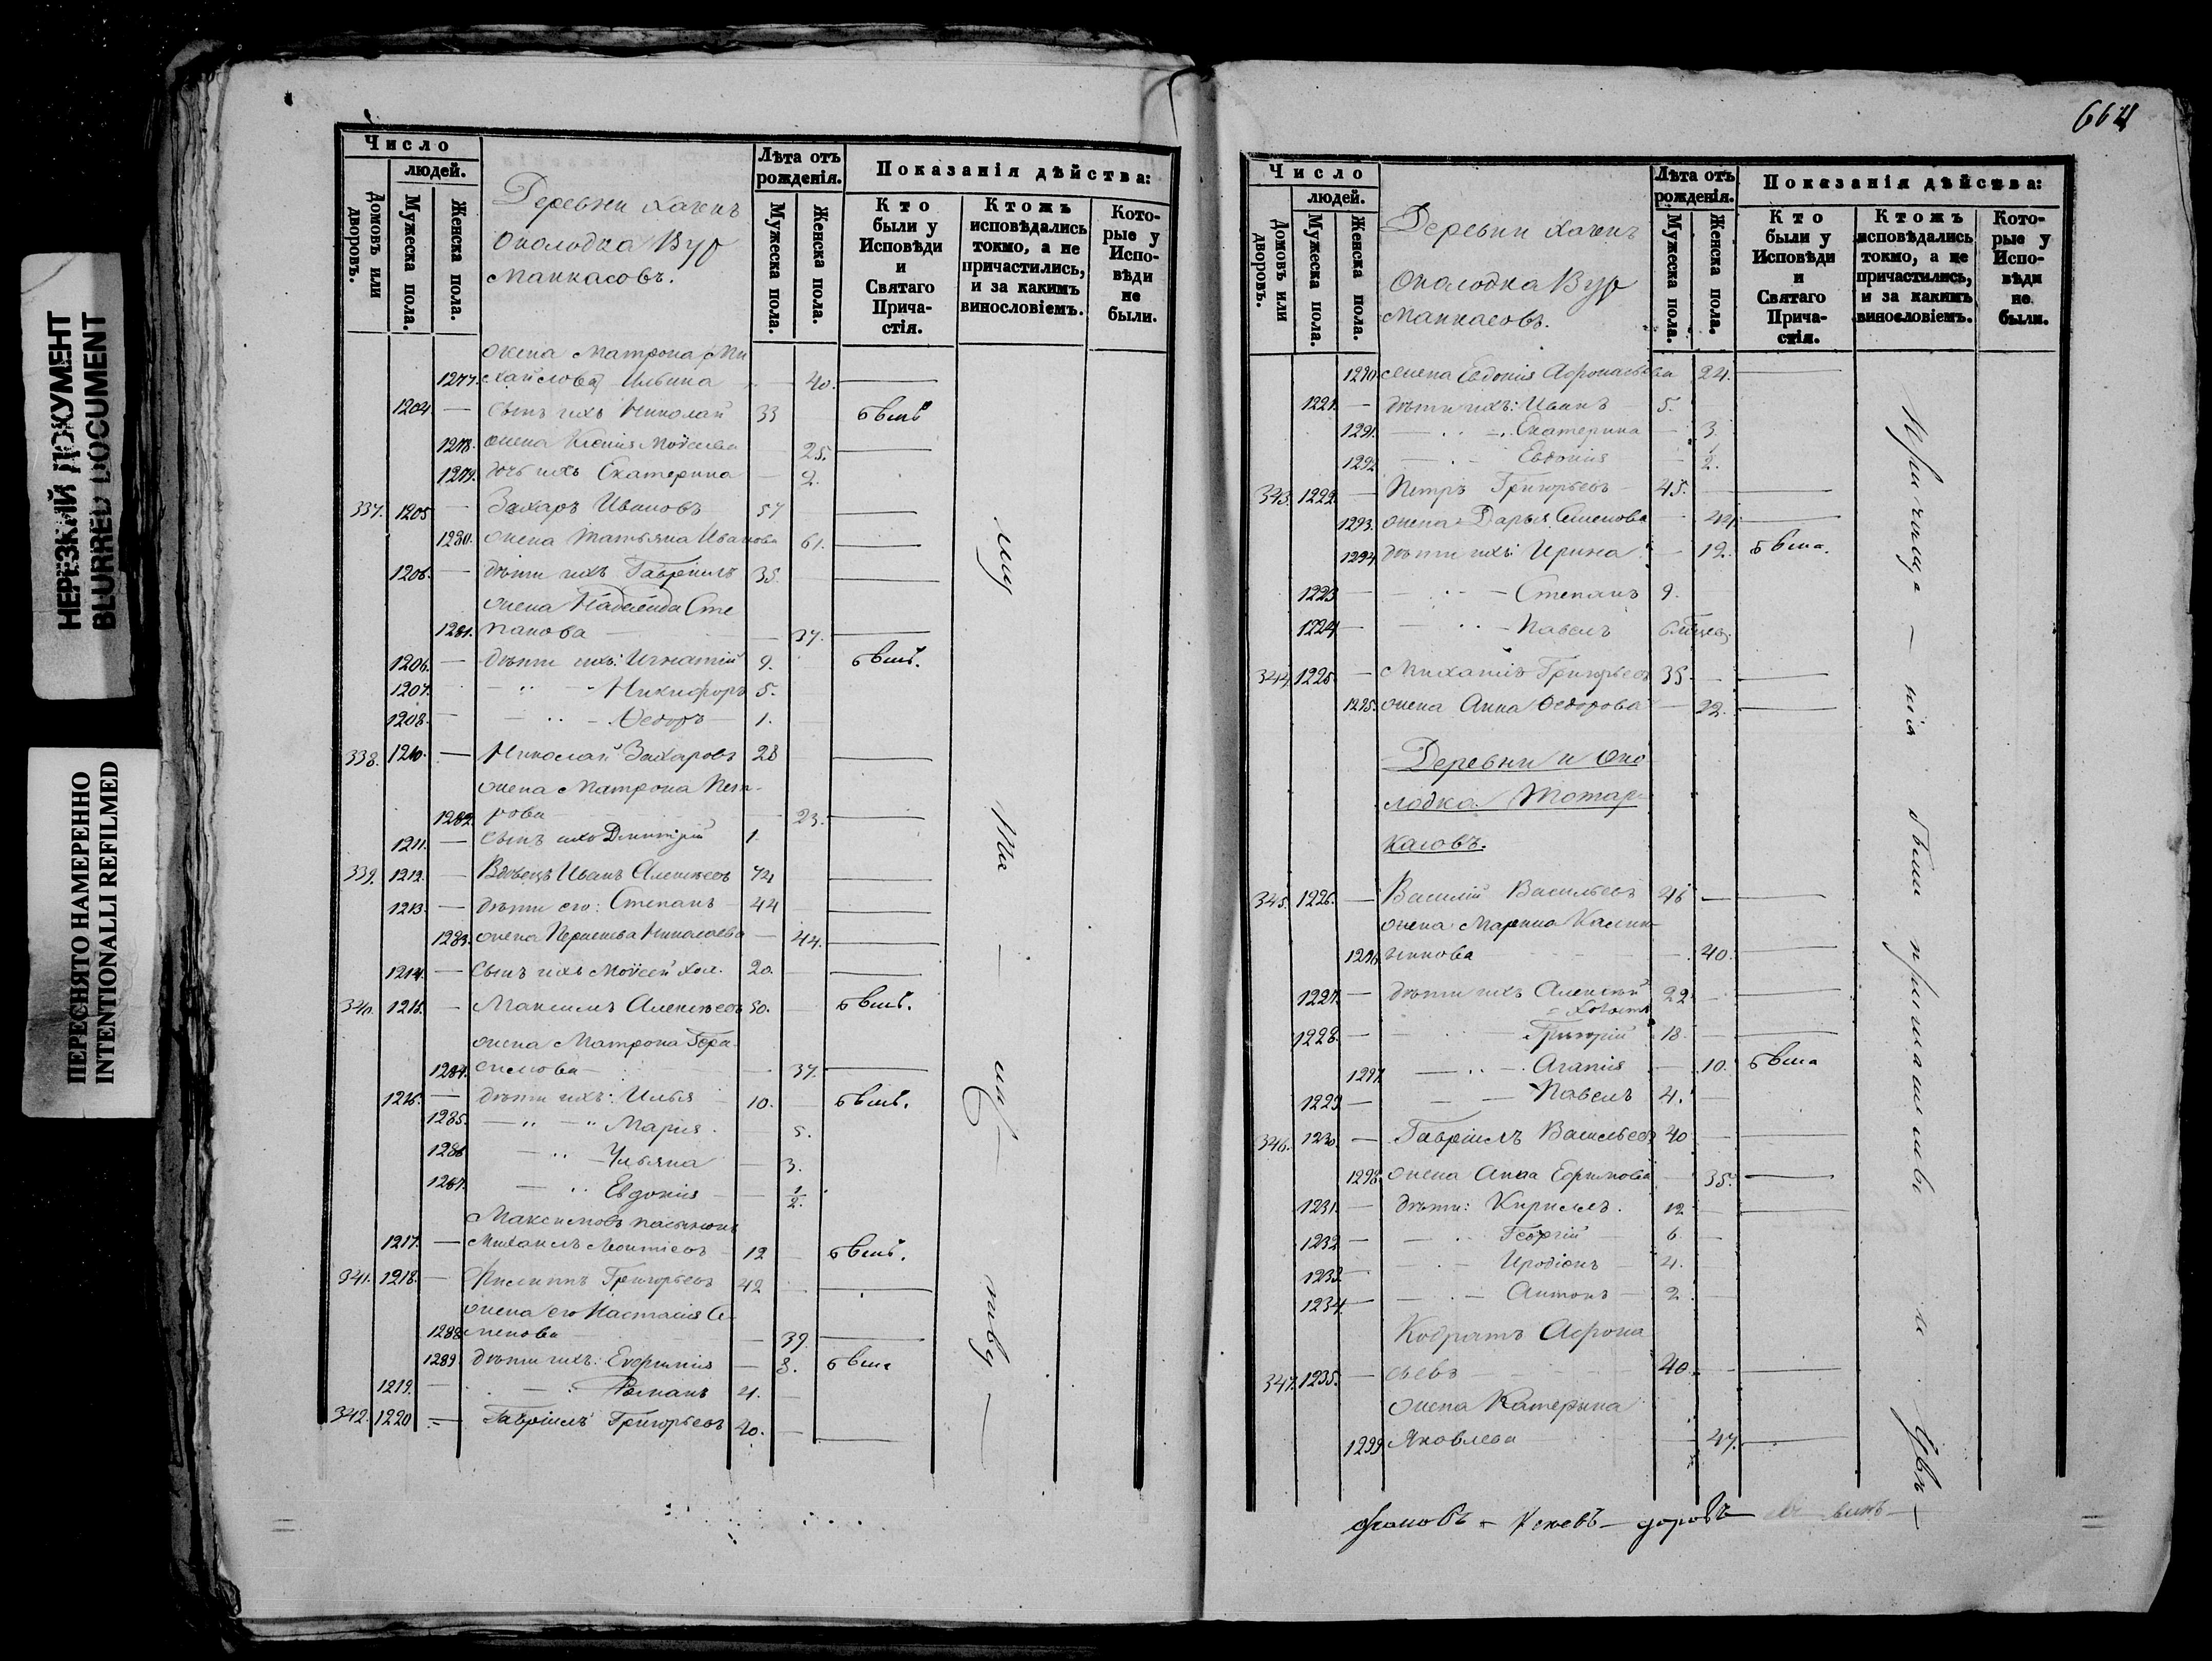 НЕРЕЗКИЙ ДОКУМЕНТ
BLURRED DOCUMENT
ПЕРЕСНЯТО НАМЕРЕННО
INTENTIONALLI REFILMED
Число
людей.
Домовъ или дворовъ.
Мужеска пола.
Женска пола.
Деревни
околодка Вур
манкасовъ.
Лѣта отъ рожденія.
Мужеска пола.
Женска пола.
Показанія дѣйства:
Кто были у Исповѣди и Святаго Причастія.
Ктожъ исповѣдались токмо, а не причастились, и за какимъ винословіемъ.
Которые у Исповѣди не были.
жена Матрона Ми
1277. хайлова 40.
1204 — сынъ ихъ Николай 33 бвш
1278. жена Ксенія Моисеева 25.
1279. дочь ихъ Екатерина — 2.
337. 1205 — Захаръ Ивановъ 57
1280. жена Татьяна Иванова 61.
1206. — дѣти ихъ Гавріилъ 35.
жена Надежда Сте
1281. панова — 37.
1206. — дѣти ихъ: Игнатій 9. бвш.
1207. — Никифоръ 5.
1208. — Ѳедоръ 1.
338. 1210. — Николай Захаровъ 28
жена Матрона Пет-
1282. рова 23.
1211. — сынъ ихъ Димитрій 1
339. 1212. — Вдовецъ Иванъ Алексѣевъ 74
1213. — дѣти его: Степанъ 44
1283. жена Николаева — 44.
1214. — Сынъ ихъ Моисей хол. 20.
340. 1215. — Максимъ Алексѣевъ 50. бвш.
жена Матрона Гера
1284. симова — 37.
1216. — дѣти ихъ: Илья 10. бвш.
1285. — Марія. 5.
1286 — Ульяна — 3.
1287. — Евдокія — 1/2.
Максимовъ
1217. — Михаилъ Леонтьевъ 12 бвш.
341. 1218. — Филиппъ Григорьевъ 42
жена его Настасія Се
1288 менова — 39.
1289. дѣти ихъ: Евфимія — 8. бвша
1219. — Романъ 4.
342. 1220 — Гавріилъ Григорьевъ 40.
664
Число
людей.
Домовъ или дворовъ.
Мужеска пола.
Женска пола.
Деревни
Околодка Вур
манкасовъ.
Лѣта отъ рожденія.
Мужеска пола.
Женска пола.
Показанія дѣйства:
Кто были у Исповѣди и Святаго Причастія.
Ктожъ исповѣдались токмо, а не причастились, и за какимъ винословіемъ.
Которые у Исповѣди не были.
1290. жена Евдокія 24.
1221. — дѣти ихъ: Иванъ 5.
1291. — Екатерина — 3.
1292 — Евдокія 1/2.
343. 1222. — Петръ Григорьевъ 45.
1293. жена Дарья Семенова 44.
1294. дѣти ихъ: Ирина — 12. бвша.
1223 — Степанъ 9.
1224 — Павелъ
344. 1225. — Михаилъ Григорьевъ 35.
1295. жена Анна Ѳедорова — 22.
Деревни и Око
лодка Тотар-
касовъ.
345. 1226. — Василій Васильевъ 46
жена Марина Калин-
1296. никова 40.
1227. — дѣти ихъ Алексѣй 22.
1228. — Григорій 18.
1297. — Агапія 10. бвша
1229 — Павелъ 4.
346. 1230. — Гавріилъ Васильевъ 40
1298. жена Анна Ефимова 35.
1231. — дѣти: Кириллъ. 12
1232 — Георгій 6.
1233. — Иродіонъ 4.
1234 — Антонъ 2
Кодратъ Афона
347. 1235. — сьевъ 40.
жена Катерина
1299. Яковлева 47.